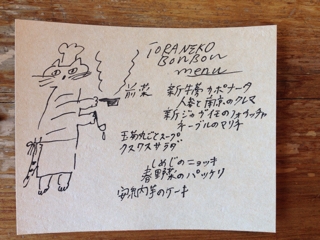 TORANEKO
BONBON
menu
前菜
新牛蒡カポナータ
人参と南京のクレマ
新ジャガイモのフォカッチャ
ネーブルのマリネ
玉葱丸ごとスープ
クスクスサラダ
しめじのニョッキ
春野菜のパッケリ
安納芋のケーキ